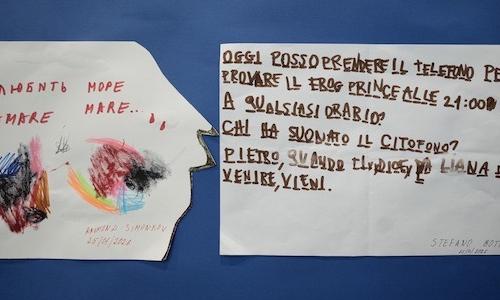 ЛЮБИТЬ МОРЕ
MARE MARE...
RAYMOND SIMONKOV
25/01/2021
OGGI POSSO PRENDERE IL TELEFONO PE
PROVARE IL FROG PRINCE ALLE 21:000
A QUALSIASI ORARIO?
CHI HA SUONATO IL CITOFONO?
PIETRO, QUANDO TI DICE, LA LIANA D
VENIRE, VIENI.
STEFANO BOTT